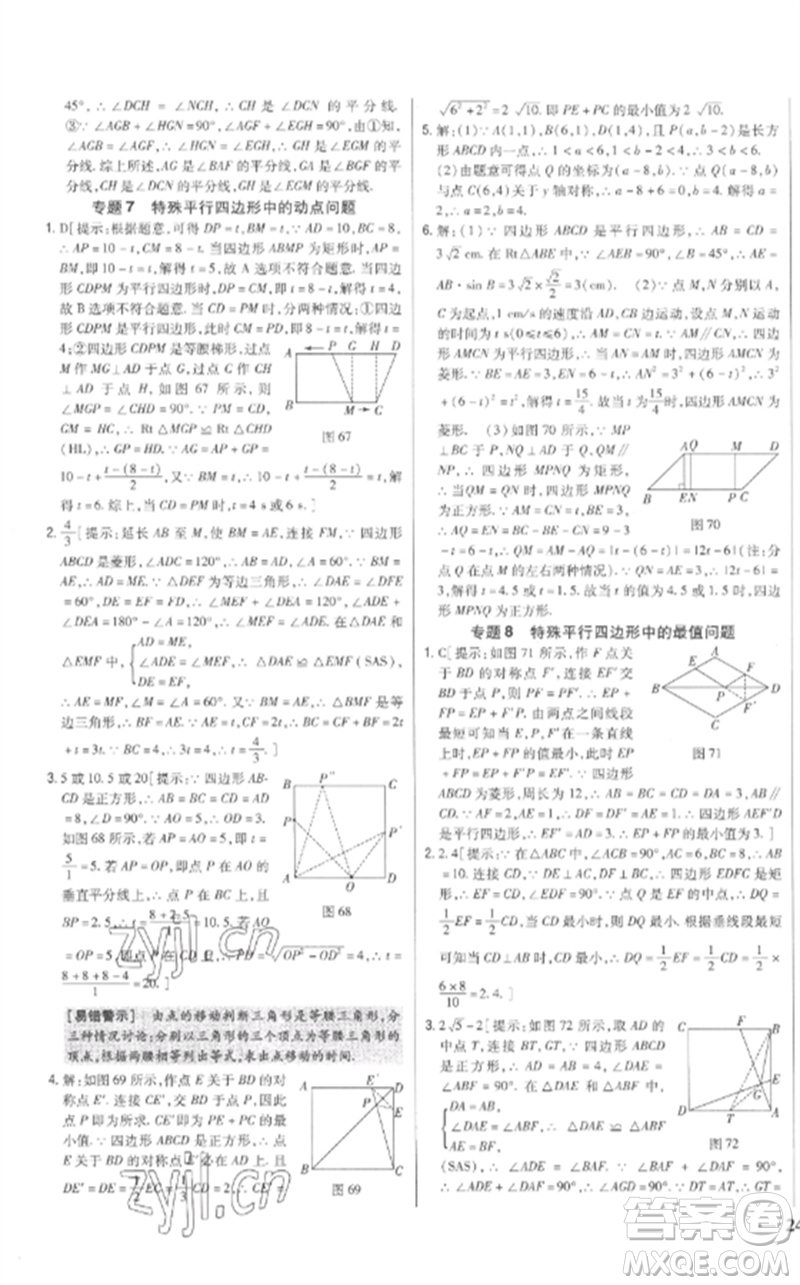 45°,∴ ∠DCH = ∠NCH,∴ CH 是 ∠DCN 的平分线.
③∵ ∠AGB + ∠HGN = 90°,∴ ∠AGF + ∠EGH = 90°. 由①知
∠BAG = ∠AGB = ∠AGF,∴ ∠HGN = ∠EGH,∴ GH 是 ∠EGM 的平
分线. 综上所述,AG 是 ∠BAF 的平分线,GA 是 ∠BGF 的平分线,
CH 是 ∠DCN 的平分线,GH 是 ∠EGM 的平分线.
专题 7 特殊平行四边形中的动点问题
1. D[提示:根据题意,可得 DP = t,BM = t.∵ AD = 10,BC = 8,
∴ AP = 10 - t,CM = 8 - t. 当四边形 ABMP 为矩形时,AP = BM,
即 10 - t = t,解得 t = 5,故 A 选项不符合题意. 当四边
形 CDPM 为平行四边形时,DP = CM,即 t = 8 - t,解得 t = 4,
故 B 选项不符合题意. 当 CD = PM 时,分两种情况:①四边
形 CDPM 是平行四边形,此时 CM = PD,即 8 - t = t,解得 t =
4;②四边形 CDPM 是等腰梯形,过点
M 作 MG ⊥ AD 于点 G,过点 C 作 CH
⊥ AD 于点 H,如图 67 所示,则
∠MGP = ∠CHD = 90°.∵ PM = CD,
GM = HC,∴ Rt△MGP ≌ Rt△CHD
(HL),∴ GP = HD.∵ AG = AP + GP =
10 - t + (t - (8 - t))/2,又∵ BM = t,∴ 10 - t + (t - (8 - t))/2 = t,解
得 t = 6. 综上,当 CD = PM 时,t = 4 s 或 6 s.]
图 67
2. 4/3[提示:延长 AB 至 M,使 BM = AE,连接 FM,∵ 四边形
ABCD 是菱形,∠ADC = 120°,∴ AB = AD,∠A = 60°,∴ AD =
ME.∵ △DEF 为等边三角形,∴ ∠DAE = ∠DFE
= 60°,DE = EF = FD,∴ ∠MEF + ∠DEA = 120°,∠ADE +
∠DEA = 180° - ∠A = 120°,∴ ∠MEF = ∠ADE. 在 △DAE 和
△EMF 中,{AD = ME, ∠ADE = ∠MEF, DE = EF, ∴ △DAE ≌ △EMF(SAS),
∴ AE = MF,∠M = ∠A = 60°. 又∵ BM = AE,∴ △BMF 是等
边三角形,∴ BF = AE.∵ AE = t,CF = 2t,∴ BC = CF + BF = 2t
+ t = 3t.∵ BC = 4,∴ 3t = 4,∴ t = 4/3.]
3. 5 或 10.5 或 20[提示:∵ 四边形 AB-
CD 是正方形,∴ AB = BC = CD = AD
= 8,∠D = 90°.∵ AO = 5,∴ OD = 3.
如图 68 所示,若 AP = AO = 5,即 t =
5/1 = 5. 若 AP = OP,即点 P 在 AO 的
垂直平分线上,∴ P 是 BC 上一点,且
BP = 2.5,∴ t = (8 + 2.5)/1 = 10.5. 若 AO
= OP = 5,即点 P 在 CD 上,∴ PD = √(OP² - OD²) = 4,∴ t =
(8 + 8 + 8 - 4)/1 = 20.]
图 68
[易错警示] 由点的移动判断三角形是等腰三角形,分
三种情况讨论:分别以三角形的三个顶点为等腰三角形的
顶点,根据两腰相等列出等式,求出点移动的时间.
4. 解:如图 69 所示,作点 E 关于 BD 的对
称点 E′. 连接 CE′交 BD 于点 P,此时
点 P 即为所求. CE′即为 PE + PC 的最
小值.∵ 四边形 ABCD 是正方形,∴ 点
E 关于 BD 的对称点 E′在 AD 上,∴
DE′ = DE = 2
图 69
√(6² + 2²) = 2√10. 即 PE + PC 的最小值为 2√10.
5. 解:(1)∵ A(1,1),B(6,1),D(1,4),且 P(a,b - 2)是长方
形 ABCD 内一点,∴ 1 < a < 6,1 < b - 2 < 4,∴ 3 < b < 6.
(2)由题意可得点 Q 的坐标为(a - 8,b - 2 + 2),即 Q(a - 8,b).∵ 点 Q
与点 C(6,4)关于 y 轴对称,∴ a - 8 = -6,b = 4,解得 a =
2,∴ P(2,2).
6. 解:(1)∵ 四边形 ABCD 是平行四边形,∴ AB = CD =
3√2 cm. 在 Rt△ABE 中,∵ ∠AEB = 90°,∠B = 45°,∴ AE =
AB · sin B = 3√2 × √2/2 = 3(cm). (2)∵ 点 M,N 分别以 A,
C 为起点,1 cm/s 的速度沿 AD,CB 边运动,设点 M,N 运动
的时间为 t s(0≤t≤6),∴ AM = CN = t.∵ AM∥CN,∴ 四边
形 AMCN 为平行四边形,∴ 当 AN = AM 时,四边形 AMCN 为
菱形.∵ BE = AE = 3,EN = 6 - t,∴ AN² = 3² + (6 - t)²,∴ 3²
+ (6 - t)² = t²,解得 t = 15/4. 故当 t 为 15/4 时,四边形 AMCN 为
菱形. (3)如图 70 所示,∵ MP
⊥ BC 于点 P,NQ ⊥ AD 于点 Q,QM∥
NP,∴ 四边形 MPNQ 为矩形,∴
当 QM = QN 时,四边形 MPNQ 为
正方形.∵ AM = CN = t,BE = 3,
∴ AQ = EN = BC - BE - CN = 9 - 3
- t = 6 - t,∴ QM = |AM - AQ| = |t - (6 - t)| = |2t - 6|(注:分
点 Q 在点 M 的左右两种情况).∵ QN = AE = 3,∴ |2t - 6| =
3,解得 t = 4.5 或 t = 1.5. 故当 t 的值为 4.5 或 1.5 时,四边形
MPNQ 为正方形.
图 70
专题 8 特殊平行四边形中的最值问题
1. C[提示:如图 71 所示,作 F 点关
于 BD 的对称点 F′,连接 EF′交 BD
于点 P,则 PF = PF′.∴ EP + FP =
EP + F′P. 由两点之间线段
最短可知当 E,P,F′在一条直线
上时,EP + FP 的值最小,∵ 四边形
ABCD 为菱形,周长为 12,∴ AB = BC = CD = DA = 3,AB∥
CD.∵ AF = 2,AE = 1,∴ DF = DF′ = AE = 1,∴ 四边形 AEF′D
是平行四边形,∴ EF′ = AD = 3.∴ EP + FP 的最小值为 3.]
图 71
2. 2.4[提示:∵ 在 △ABC 中,∠ACB = 90°,AC = 6,BC = 8,∴ AB
= 10. 连接 CD,∵ DE ⊥ AC,DF ⊥ BC,∴ 四边形 EDFC 是矩
形,∴ EF = CD,∵ Q 是 EF 的中点,∴ DQ =
1/2 EF = 1/2 CD,∴ 当 CD 最小时,DQ 最小. 根据垂线段最短
可知当 CD ⊥ AB 时,CD 最小,∴ DQ = 1/2 EF = 1/2 CD = 1/2 ×
(6 × 8)/10 = 2.4.]
3. 2√5 - 2[提示:如图 72 所示,取 AD 的
中点 T,连接 BT,GT,∵ 四边形 ABCD
是正方形,∴ AD = AB = 4,∠DAE =
∠ABF = 90°. 在 △DAE 和 △ABF 中,
{DA = AB, ∠DAE = ∠ABF, AE = BF, ∴ △DAE ≌ △ABF
(SAS),∴ ∠ADE = ∠BAF.∵ ∠BAF + ∠DAF = 90°,∴ ∠EDA
+ ∠DAF = 90°,∴ ∠AGD = 90°.∵ DT = AT,∴ GT =
图 72
24
zyjl.cn
答案圈
MXQE.COM